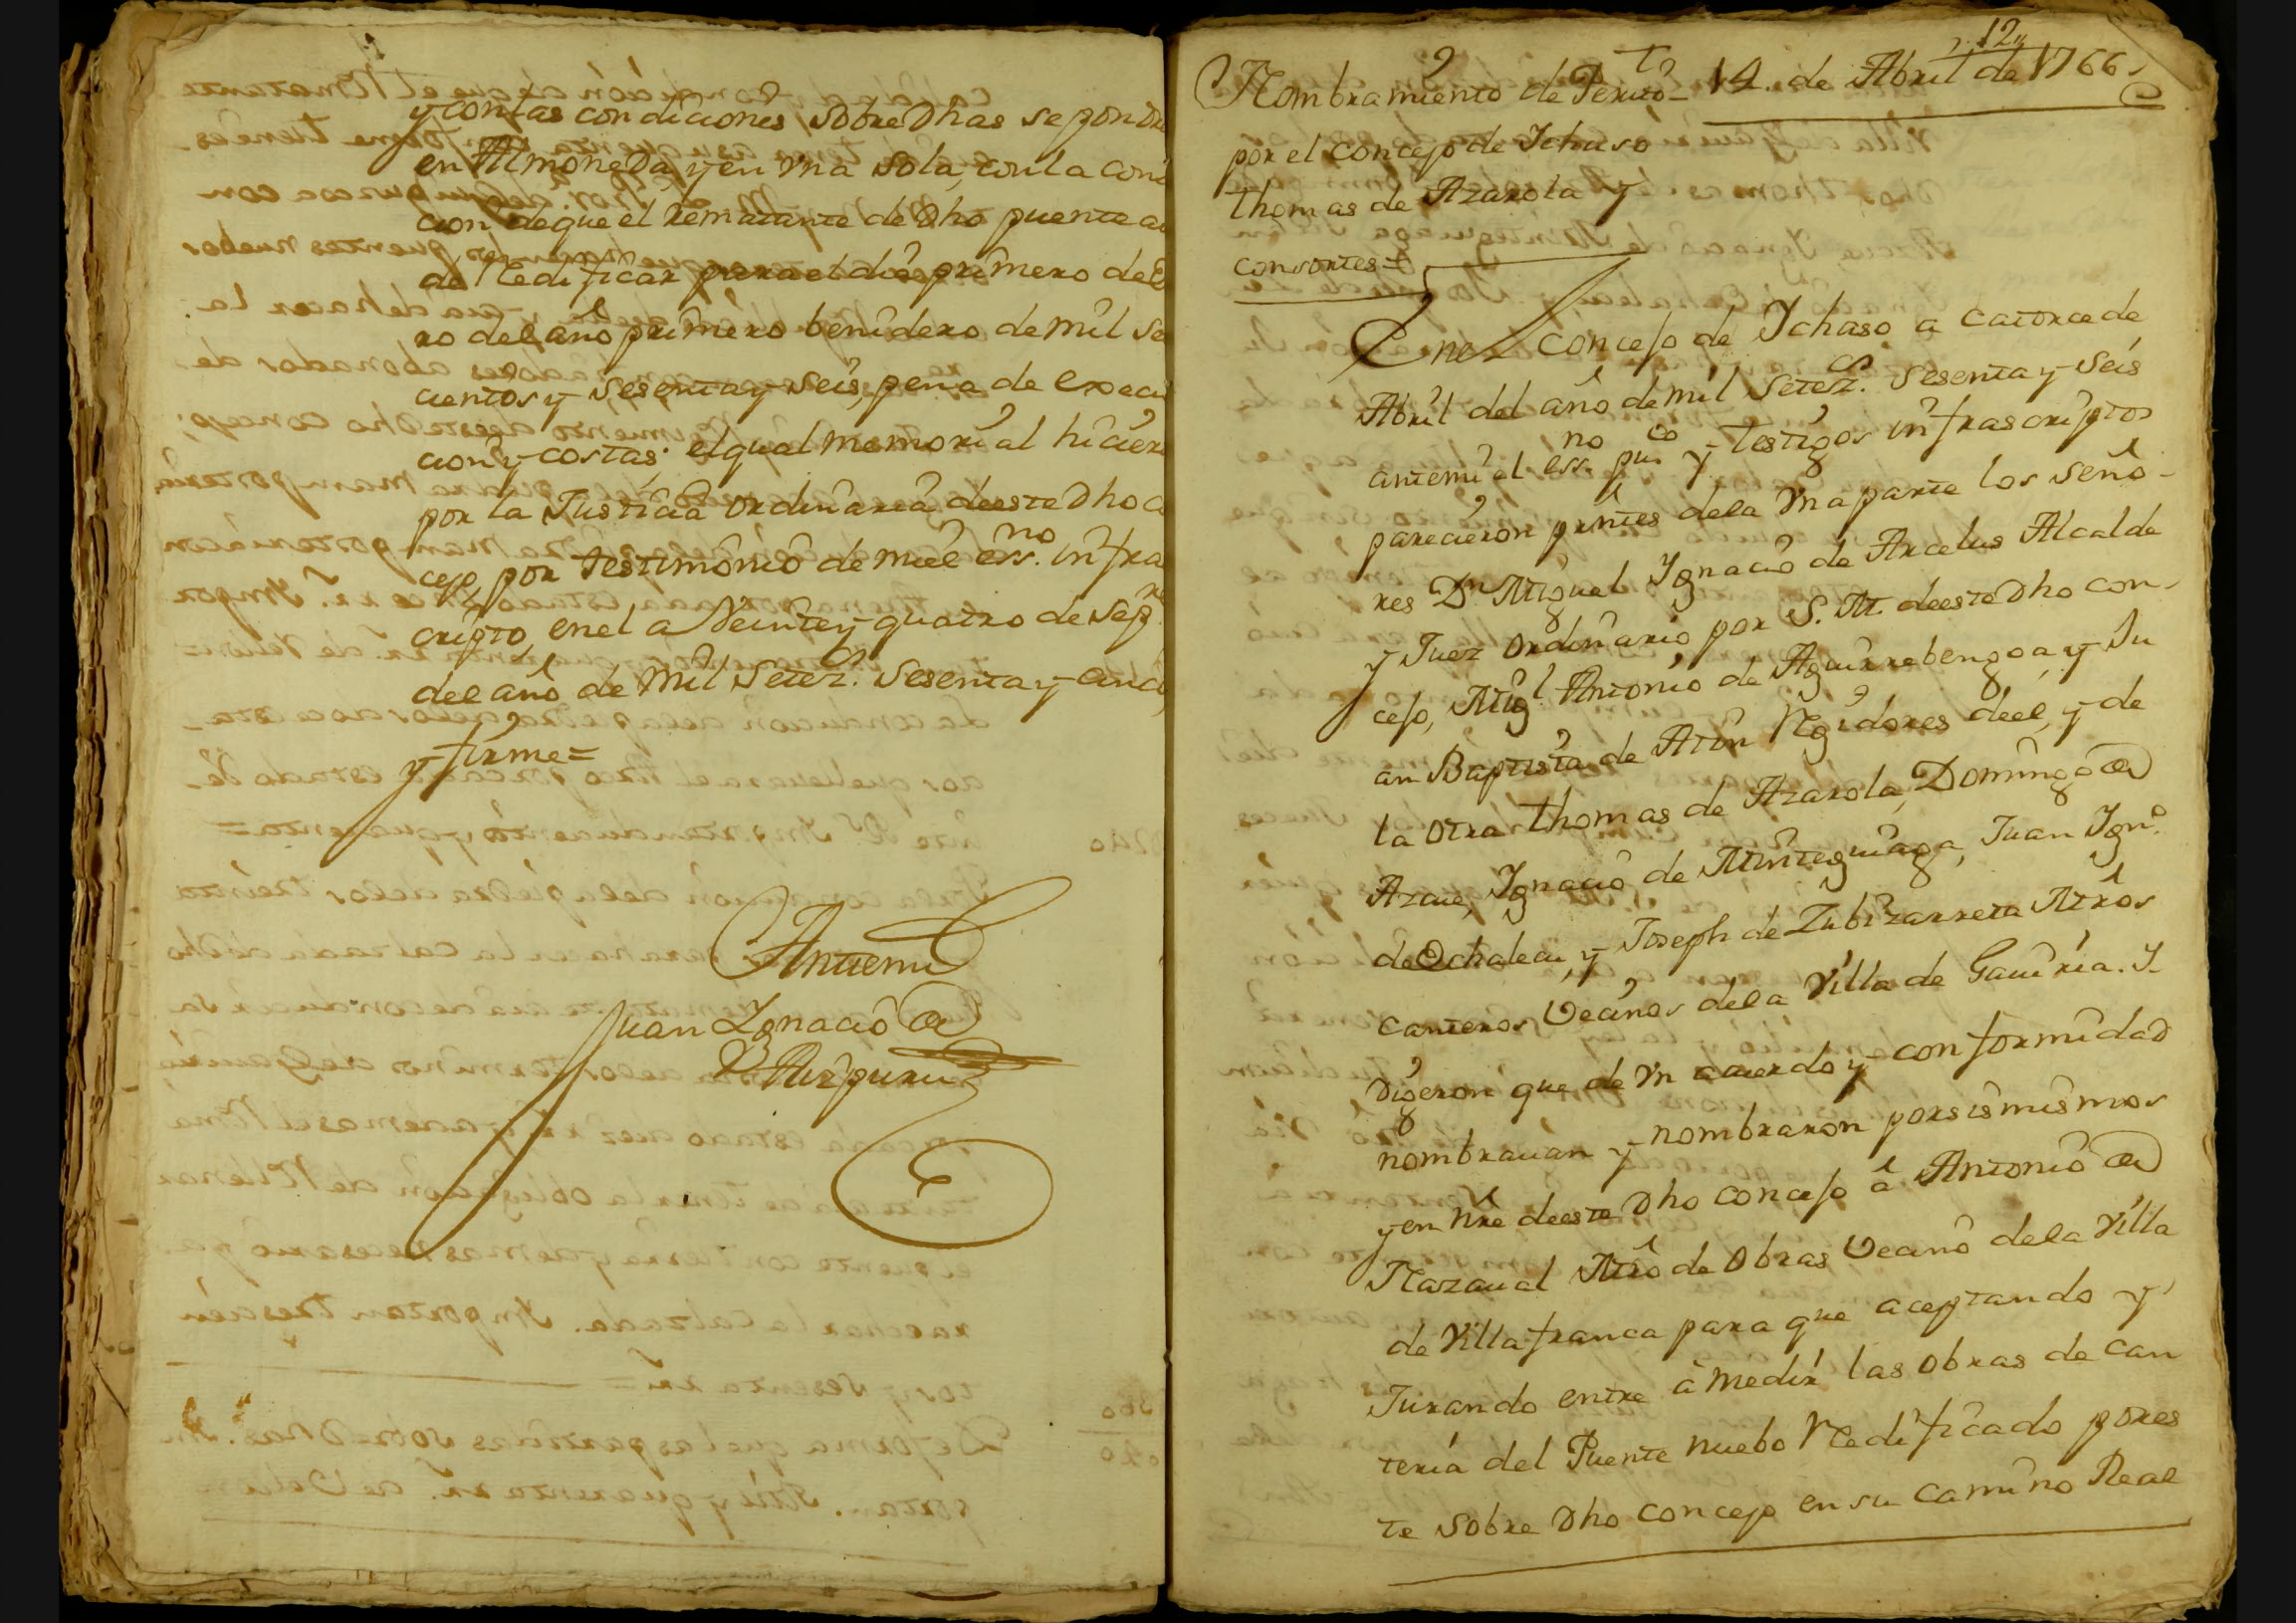 y con las condiciones sobre Dhas se pondra
en Almoneda, y en vna sola, con la condi
cion de que el Rematante de Dho puente a
de Redificar para el dia primero de
ro del año primero benidero de mil Se
cientos y Sesenta y Seis, pena de execu
cion y costas: el qual memorial hicier
por la Justicia Ordinaria de este Dho con
cejo, por Testimonio de mi el ess.no infra
cripto, en el a Veinte y quatro de Sep.re
del año de Mil Setez.s Sesenta y Cinco,
y firme=
Antemi
Juan Ignacio de
Aizpuru
12
Nombramiento de Perito 14. de Abril de 1766
por el concejo de Ichaso
Thomas de Azarola y
consortes=
En el Concejo de Ichaso a Catorce de
Abril del año de mil Setez.s Sesenta y Seis
antemi el ess.no pu.co y Testigos infrascriptos
parecieron pntes de la Vna parte los Seño-
res Dn Miguel Ignacio de Arcelus Alcalde
y Juez Ordinario por S. M. de este Dho con-
cejo, Mig.l Antonio de Aguirrebengoa y Ju
an Baptista de Atin Regidores de el, y de
la otra Thomas de Azarola, Domingo de
Azcue, Ignacio de Minteguiaga, Juan Ign.o
de Ochalecu, y Joseph de Zubizarreta Mros
Canteros Vecinos de la Villa de Gaviria. I
Digeron que de Vn acuerdo y conformidad
nombrauan y nombraron por si mismos
y en nre de este Dho concejo â Antonio de
Mazaual Mro de Obras Vecino de la Villa
de Villafranca para que aceptando y
Jurando entre â medir las obras de Can
teria del Puente nuebo Redificado por es
te sobre Dho Concejo en su Camino Real